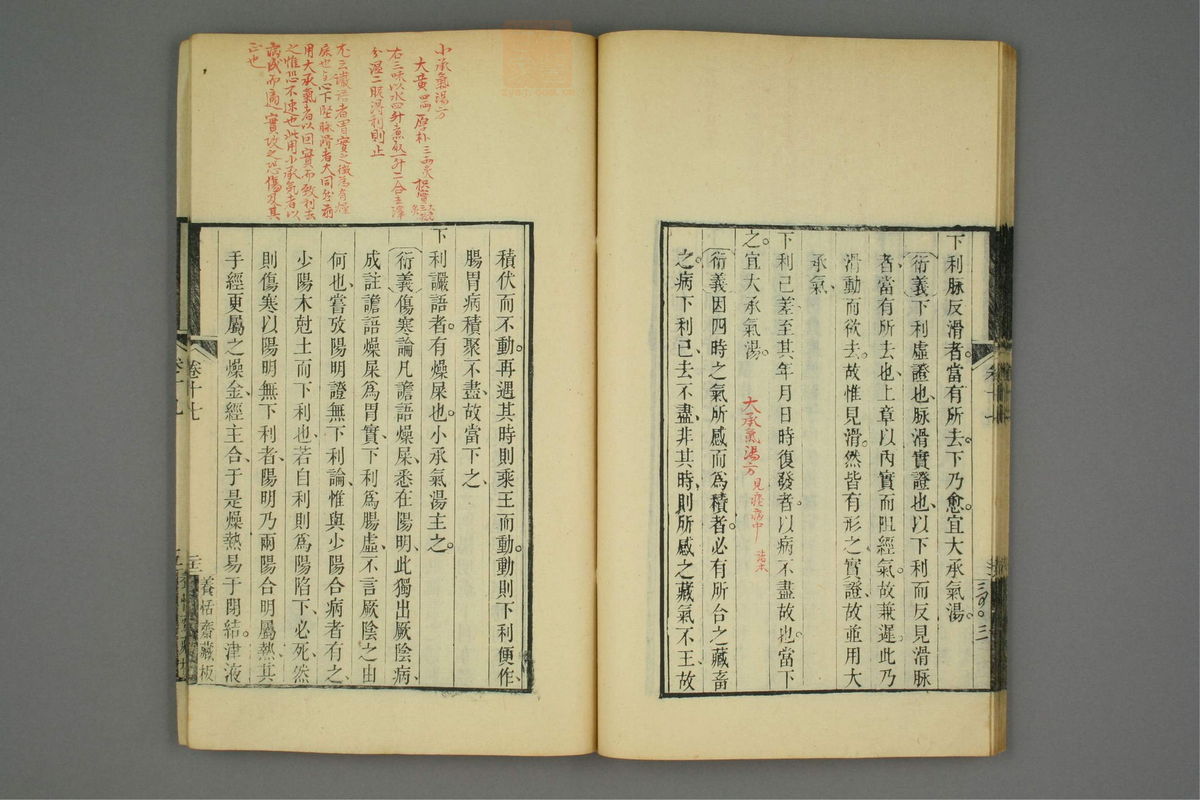 下利脉反滑者當有所去下乃愈宜大承氣湯
衍義下利虛證也脉滑實證也以下利而反見滑脉
者當有所去也上章以內實而阻經氣故兼遲此乃
滑動而欲去故惟見滑然皆有形之實證故並用大
承氣
下利已差至其年月日時復發者以病不盡故也當下
之宜大承氣湯
大承氣湯方 見痙病中
衍義因四時之氣所感而爲積者必有所合之藏畜
之病下利已去不盡非其時則所感之藏氣不王故
積伏而不動再遇其時則乘王而動動則下利便作
腸胃病積聚不盡故當下之
下利讝語者有燥屎也小承氣湯主之
衍義傷寒論凡譫語燥屎悉在陽明此獨出厥陰病
成註譫語燥屎爲胃實下利爲腸虛不言厥陰之由
何也嘗攷陽明證無下利論惟與少陽合病者有之
少陽木尅土而下利也若自利則爲陽陷下必死然
則傷寒以陽明無下利者陽明乃兩陽合明屬熱其
手經更屬之燥金經主合于是燥熱易于閉結津液
小承氣湯方
大黃四兩 厚朴三兩炙 枳實
右三味以水四升煮取一升二合去滓
分溫二服得利則止
尤云讝語者胃實之徵爲有燥
屎也與心下堅脉滑者大同然前
用大承氣者以因實而致利去
之惟恐不速也此用小承氣者以
病成而適實攻之恐傷及其
正也
卷十七
養恬齋藏板